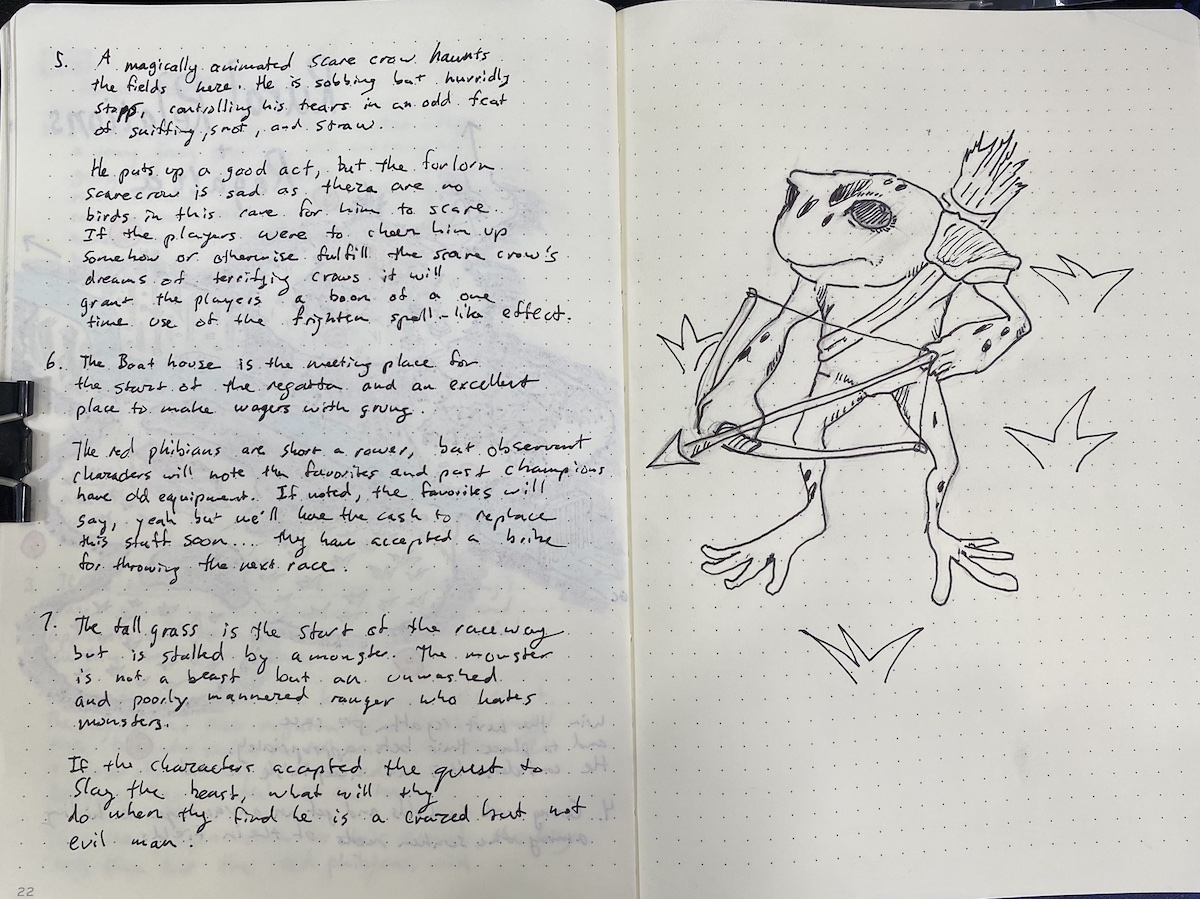 5. A magically animated scare crow haunts
the fields here. He is sobbing but hurridly
stops, controlling his tears in an odd feat
of sniffing, snot, and straw.
He puts up a good act, but the forlorn
scarecrow is sad as there are no
birds in this cave for him to scare.
If the players were to cheer him up
somehow or otherwise fulfill the scare crow's
dreams of terrifying crows it will
grant the players a boon of a one
time use of the frighten spell-like effect.
6. The Boat house is the meeting place for
the start of the regatta and an excellent
place to make wagers with grung.
The red phibians are short a rower, but observant
characters will note the favorites and past champions
have old equipment. If noted, the favorites will
say, yeah but we'll have the cash to replace
this stuff soon... they have accepted a bribe
for throwing the next race.
7. The tall grass is the start of the raceway
but is stalked by a monster. The monster
is not a beast but an unwashed
and poorly mannered ranger who hates
monsters.
If the characters accepted the quest to
slay the beast, what will thy
do when thy find he is a crazed but not
evil man.
22